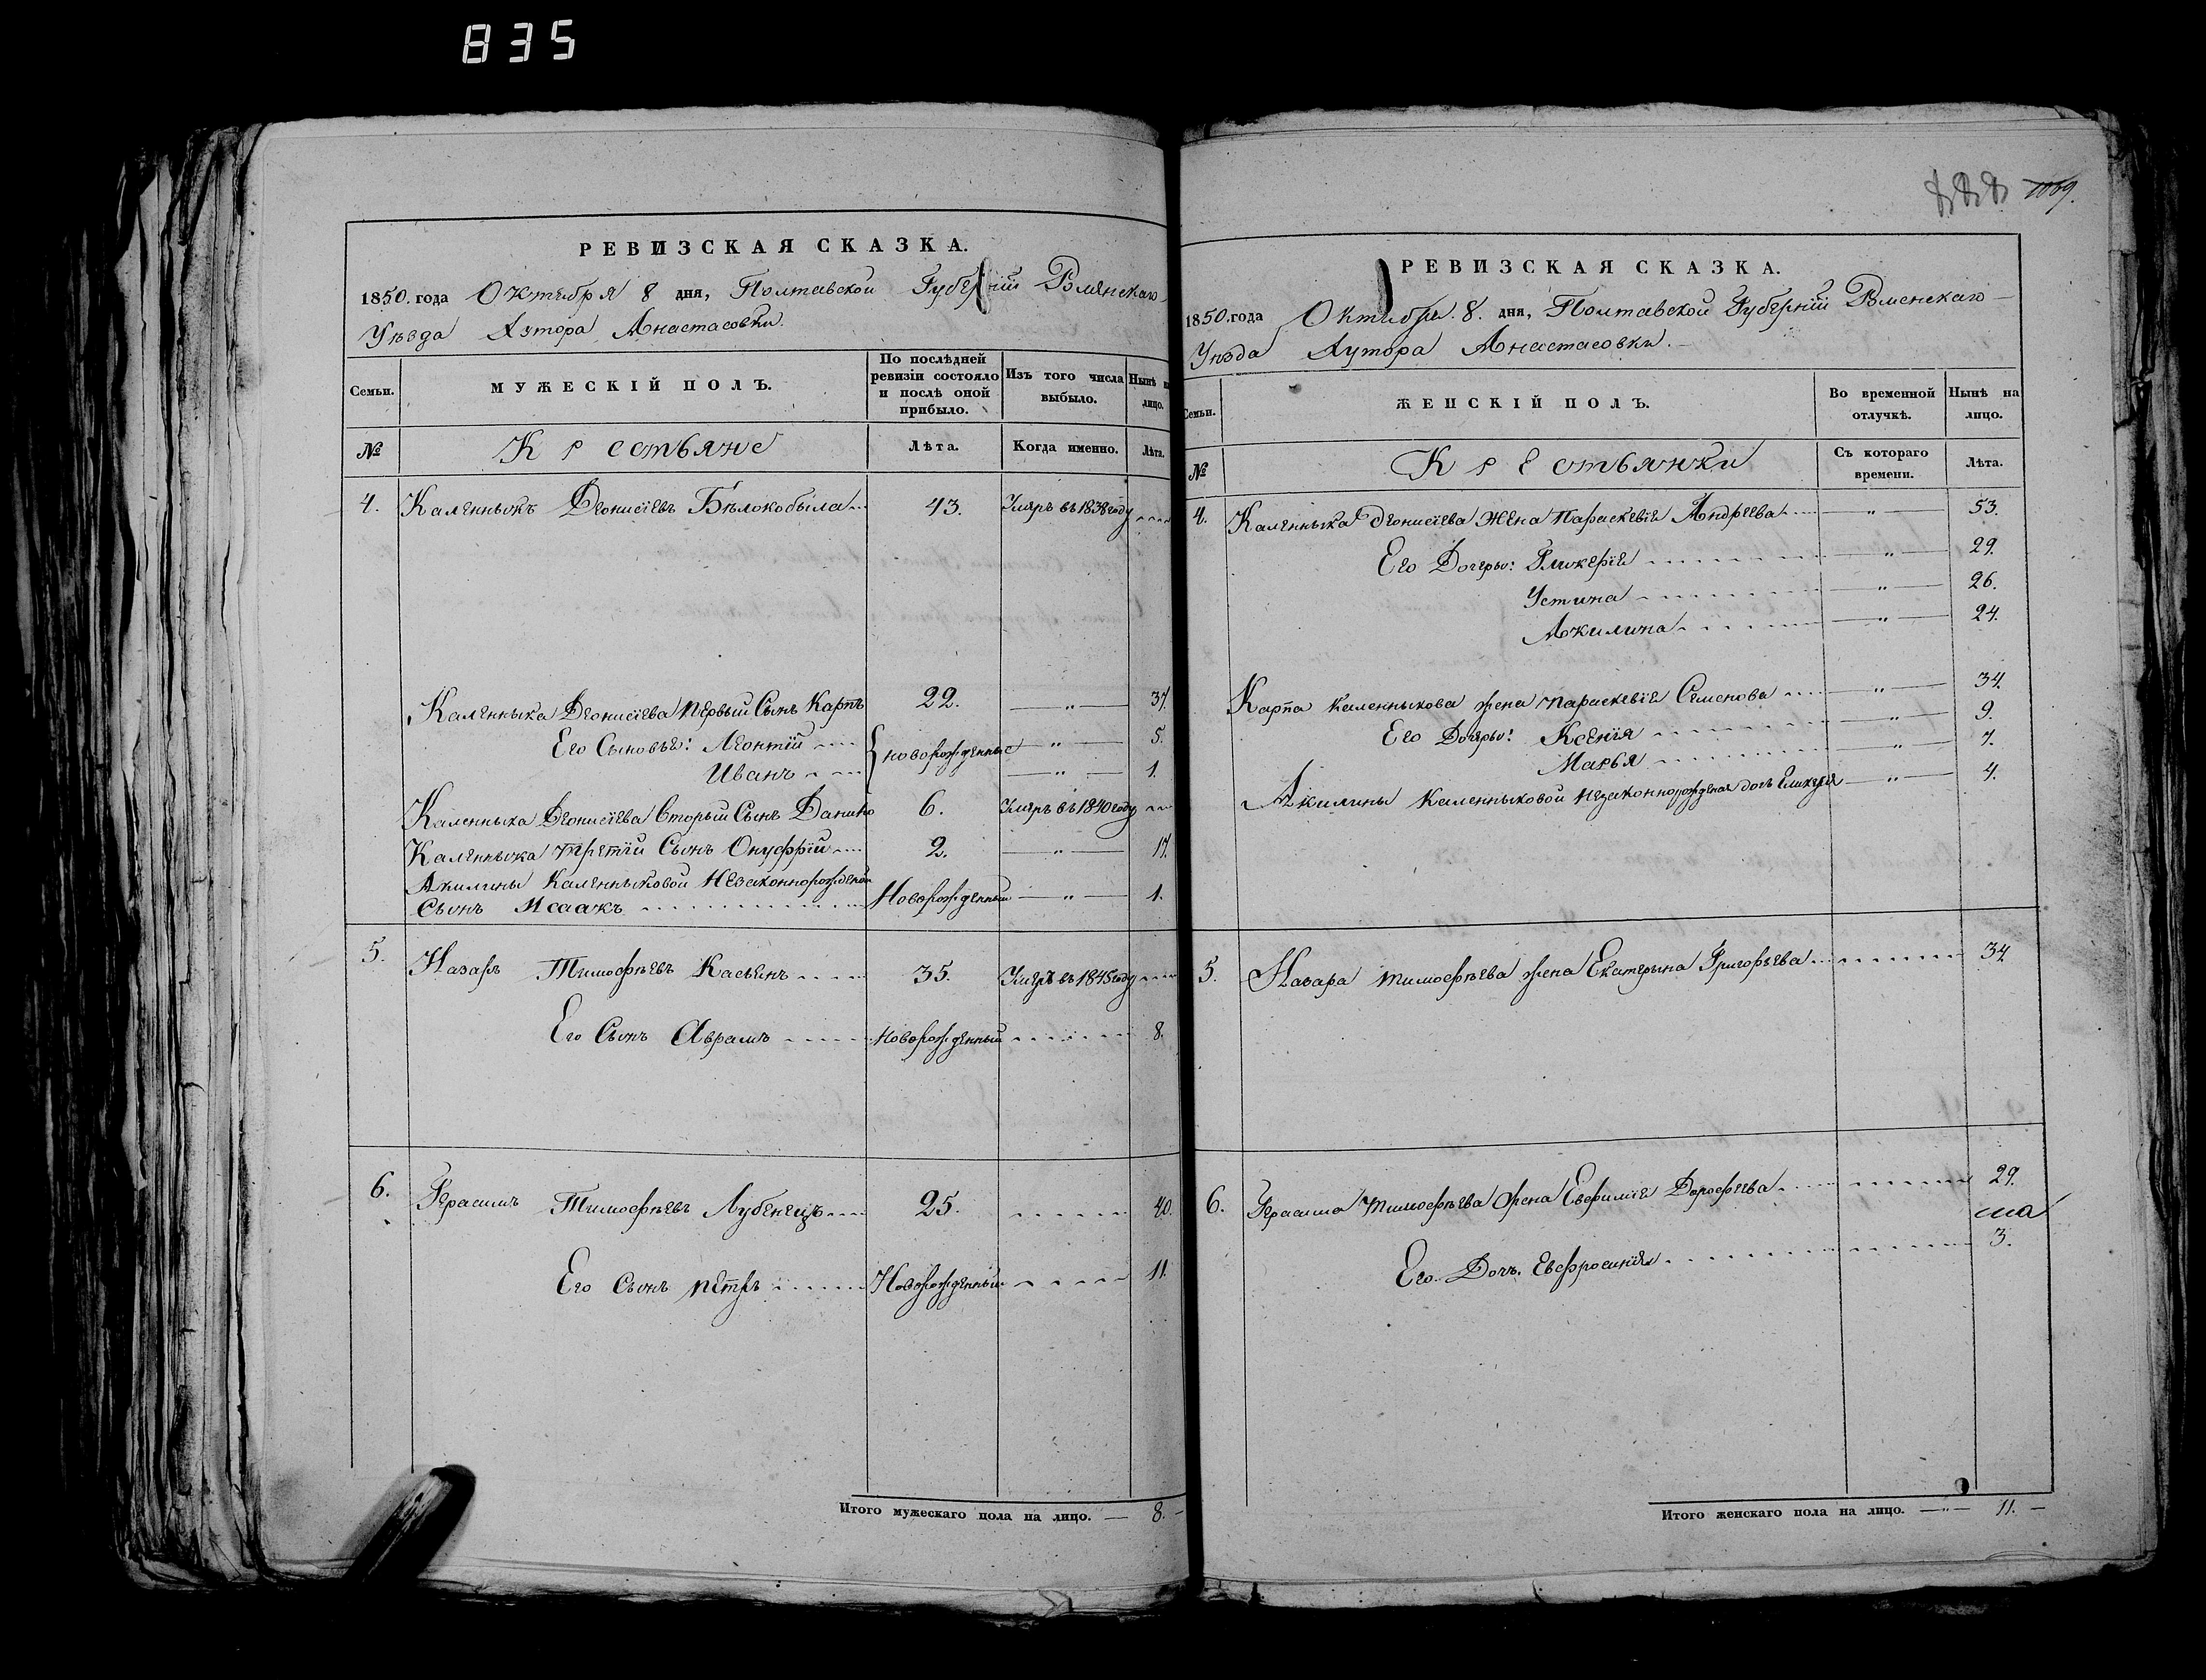 835
РЕВИЗСКАЯ СКАЗКА.
1850. года Октября 8 дня, Полтавской Губерніи Роменскаго
Уѣзда Хутора Анастасовки.
Семьи.
МУЖЕСКІЙ ПОЛЪ.
По послѣдней ревизіи состояло и послѣ оной прибыло.
Изъ того числа выбыло.
Нынѣ на лицо.
№
Крестьяне
Лѣта.
Когда именно.
Лѣта.
4. Каленныкъ Деонисіевъ Бѣлокобыла 43. Умеръ въ 1838 году
Каленныка Деонисіева первый Сынъ Карпъ 22. — " — 37.
Его Сыновья: Леонтій { новорожденные — " — 5.
Иванъ — " — 1.
Каленныка Деонисіева Вторый Сынъ Данило 6. Умеръ въ 1840 году
Каленныка третій Сынъ Онуфрій 2. — " — 17.
Акилины Каленныковой Незаконнорожденой
Сынъ Исаакъ Новорожденный — " — 1.
5. Назаръ Тимофѣевъ Касьенъ 35. Умеръ въ 1845 году
Его Сынъ Аврамъ новорожденный 8.
6. Герасимъ Тимофѣевъ Лубенецъ 25. 40.
Его Сынъ Петръ Новорожденный 11.
Итого мужескаго пола на лицо. — 8. -
1069.
РЕВИЗСКАЯ СКАЗКА.
1850. года Октября 8. дня, Полтавской Губерніи Роменскаго
Уѣзда Хутора Анастасовки.
Семьи.
ЖЕНСКІЙ ПОЛЪ.
Во временной отлучкѣ.
Нынѣ на лицо.
№
Крестьянки
Съ котораго времени.
Лѣта.
4. Каленныка Деонисіева Жена Параскевія Андреева — " — 53.
Его Дочеры: Гликерія — " — 29.
Устина — " — 26.
Акилина — " — 24.
Карпа Каленныкова жена Параскевія Семенова — " — 34.
Его Дочеры: Ксенія — " — 9.
Марья — " — 7.
Акилины Каленныковой незаконнорожденая дочь Гликерія — " — 4.
5. Назара Тимофѣева жена Екатерына Григорьева 34
6. Герасима Тимофѣева Жена Евфимія Дорофеева 29.
Его Дочь. Евфросинія 3.
Итого женскаго пола на лицо. — " — 11. —